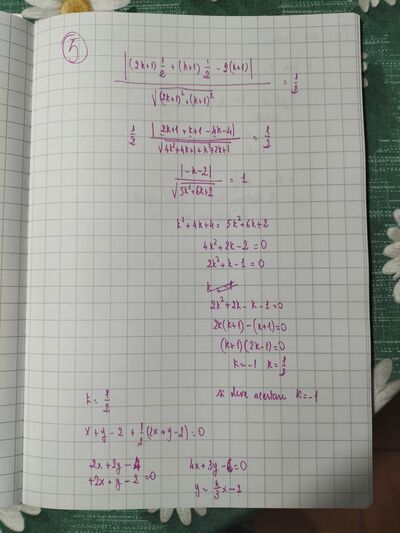 5
|(2k+1) 1/2 + (k+1) 1/2 - 2(k+1)| / √((2k+1)² + (k+1)²) = 1/2
1/2 |2k+1 + k+1 - 4k-4| / √(4k²+4k+1+k²+2k+1) = 1/2
|-k-2| / √(5k²+6k+2) = 1
k²+4k+4 = 5k²+6k+2
4k²+2k-2=0
2k²+k-1=0
2k²+2k-k-1=0
2k(k+1)-(k+1)=0
(k+1)(2k-1)=0
k=-1 k=1/2
k=1/2 si deve scartare k=-1
x+y-2+1/2(2x+y-2)=0
2x+2y-4+2x+y-2=0 4x+3y-6=0
y=4/3x-2